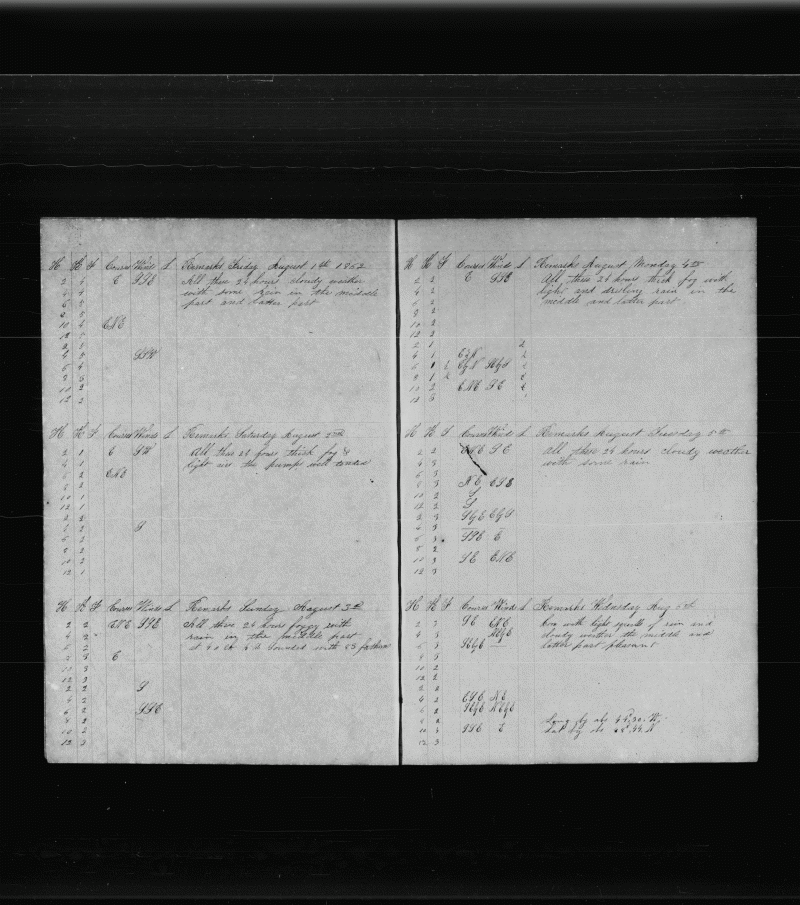 H K F Courses Winds L Remarks Friday August 1th 1862
2 4 E SSE All these 24 hours cloudy weather
4 4 with some rain in the middle
6 5 part and latter part
8 5
10 4 ENE
12 5
2 5
4 5 SSW
6 4
8 3
10 2
12 2
H K F Courses Winds L Remarks Saturday August 2nd
2 1 E SW All these 24 hours thick fog &
4 1 light airs the pumps well tended
6 2 ENE
8 2
10 1
12 1
2 2
4 2
6 2 S
8 2
10 2
12 1
H K F Courses Winds L Remarks Sunday August 3th
2 2 ENE SSE All these 24 hours foggy with
4 2 rain in the middle part
6 2 at 4 o clk sounded with 65 fathom
8 2 E
10 3
12 3
2 2 S
4 2
6 2 SSE
8 2
10 2
12 3
H K F Courses Winds L Remarks August Monday 4th
2 2 E SSE All these 24 hours thick fog with
4 2 light and drisling rain in the
6 2 middle and latter part
8 2
10 2
12 2
2 1 2
4 1 EbyN 2
6 1 EbyN SbyS 2
8 1 2
10 2 ENE SE
12 3
H K F Courses Winds L Remarks August Tuesday 5th
2 2 EbyE SE All these 24 hours cloudy weather
4 3 with some rain
6 3
8 3 NE ESE
10 2 S
12 2 S
2 2 SbyE EbyS
4 3
6 3 SSE E
8 2
10 3 SE ENE
12 3
H K F Courses Winds L Remarks Wednesday Aug 6th
2 3 SE ENE Com with light sprinkle of rain and
4 3 NEbyE cloudy weather the middle and
6 3 SEbyE latter part pleasant
8 3
10 2
12 2
2 2
4 2 ESE NE
6 2 SEbyE NEbyE
8 2 Long by obs
10 3 SSE E Lat by obs
12 3